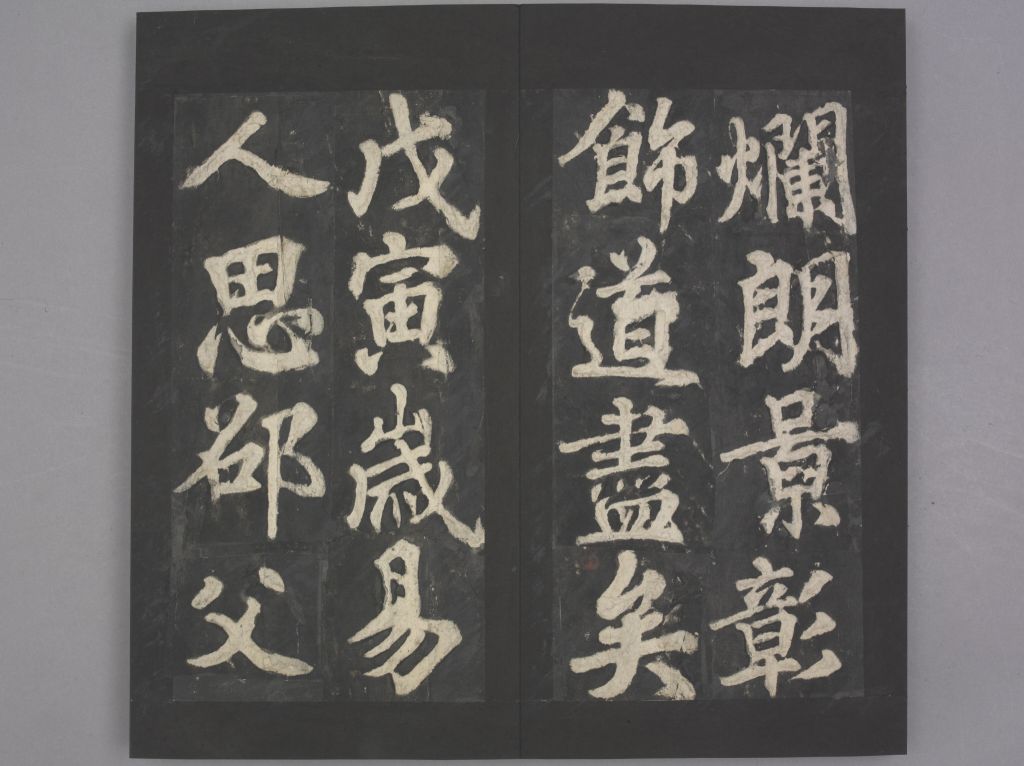 爛朗景彰
飾道盡矣
戊寅歲易
人思邵父